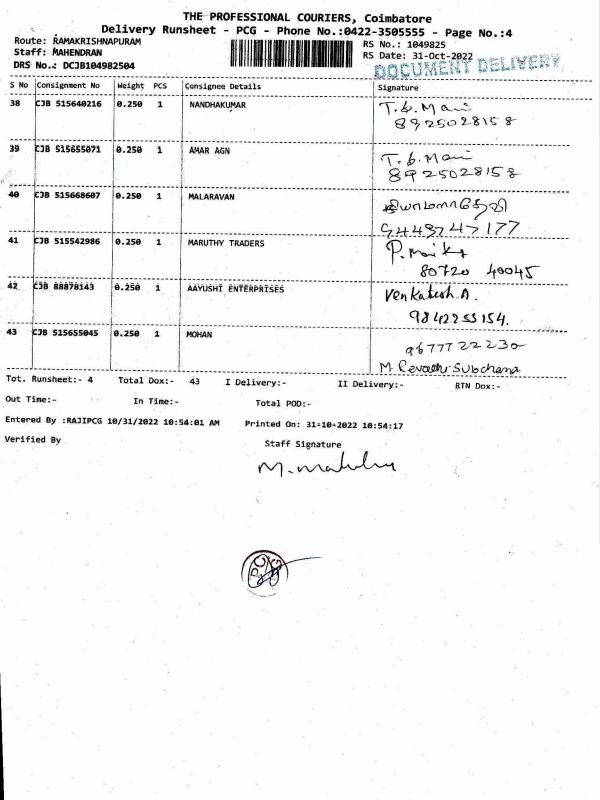 THE PROFESSIONAL COURIERS, Coimbatore
Delivery Runsheet - PCG - Phone No.:0422-3505555 - Page No.:4
Route: RAMAKRISHNAPURAM
RS No.: 1049825
Staff: MAHENDRAN
RS Date: 31-Oct-2022
DRS No.: DCJB104982504
DOCUMENT DELIVERY
S No Consignment No Weight PCS Consignee Details Signature
38 CJB 515640216 0.250 1 NANDHAKUMAR T.b. Mani
8925028158
39 CJB 515655071 0.250 1 AMAR AGN T.b. Mani
8925028158
40 CJB 515668607 0.250 1 MALARAVAN
9448747177
41 CJB 515542986 0.250 1 MARUTHY TRADERS P.
80720 40045
42 CJB 88878143 0.250 1 AAYUSHI ENTERPRISES Venkatesh.A.
9842255154.
43 CJB 515655045 0.250 1 MOHAN 9677722230
M. Revathi
Tot. Runsheet:- 4 Total Dox:- 43 I Delivery:- II Delivery:- RTN Dox:-
Out Time:- In Time:- Total POD:-
Entered By :RAJIPCG 10/31/2022 10:54:01 AM Printed On: 31-10-2022 10:54:17
Verified By Staff Signature
PCG